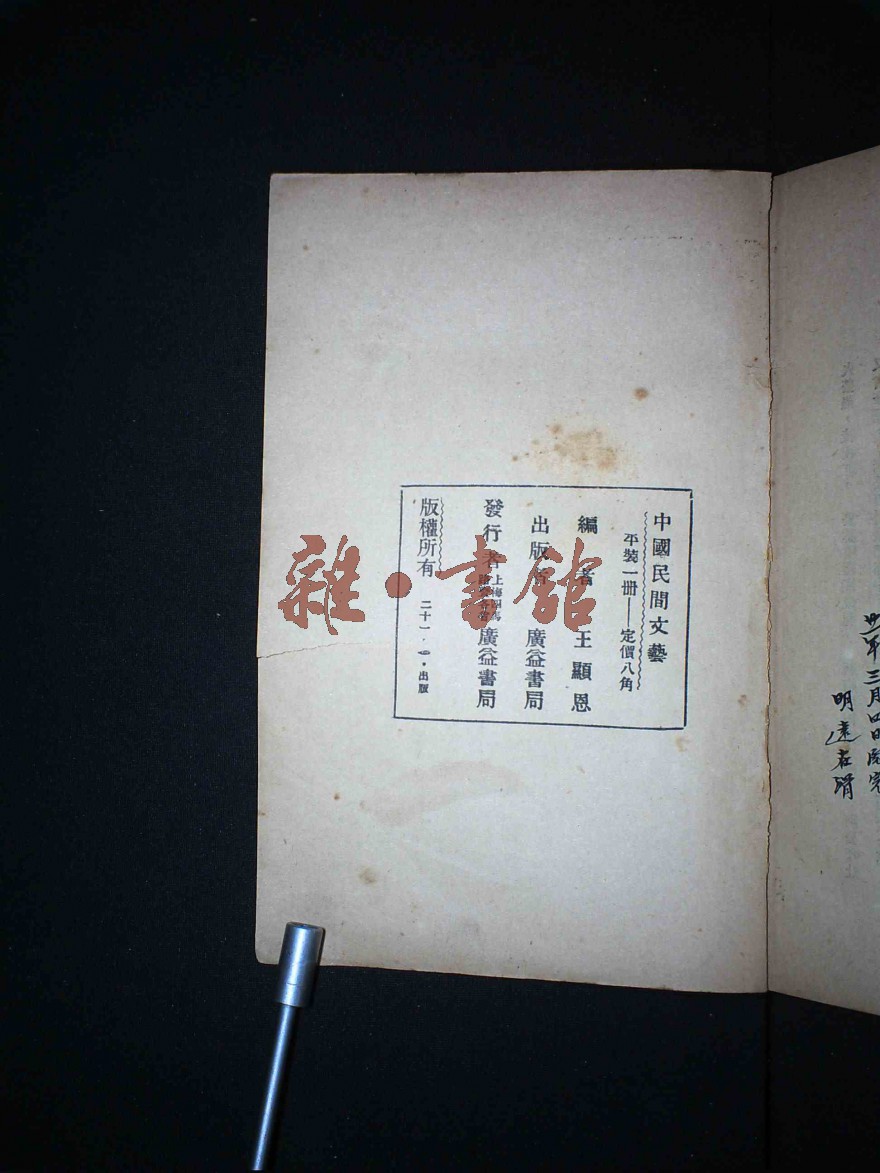 中國民間文藝
平裝一冊——定價八角
編者 王顯恩
出版者 廣益書局
發行者 上海四馬 廣益書局
版權所有 二十一・・出版
雜・書館
三月四日
明遠在滑